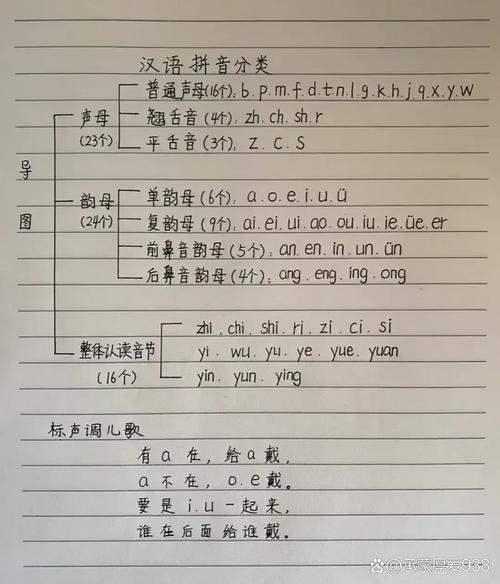 汉语拼音分类
普通声母(16个): b.p.m.f.d.t.n.l.g.k.h.j.q.x.y.w
声母 翘舌音(4个): zh.ch.sh.r
(23个) 平舌音(3个): z.c.s
导图
韵母 单韵母(6个): a.o.e.i.u.ü
(24个) 复韵母(9个): ai.ei.ui.ao.ou.iu.ie.üe.er
前鼻音韵母(5个): an.en.in.un.ün
后鼻音韵母(4个): ang.eng.ing.ong
zhi.chi.shi.ri.zi.ci.si
整体认读音节 yi.wu.yu.ye.yue.yuan
(16个) yin.yun.ying
标声调儿歌
有a在,给a戴,
a不在,o.e戴。
要是i.u一起来,
谁在后面给谁戴。
@承蒙厚爱938